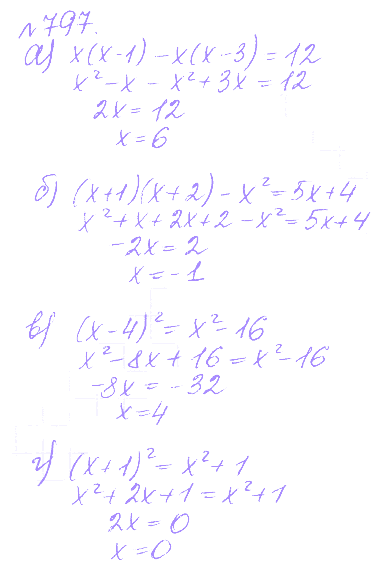 №797.
а) x(x-1) - x(x-3) = 12
x² - x - x² + 3x = 12
2x = 12
x = 6
б) (x+1)(x+2) - x² = 5x+4
x² + x + 2x + 2 - x² = 5x+4
-2x = 2
x = -1
в) (x-4)² = x² - 16
x² - 8x + 16 = x² - 16
-8x = -32
x = 4
г) (x+1)² = x² + 1
x² + 2x + 1 = x² + 1
2x = 0
x = 0